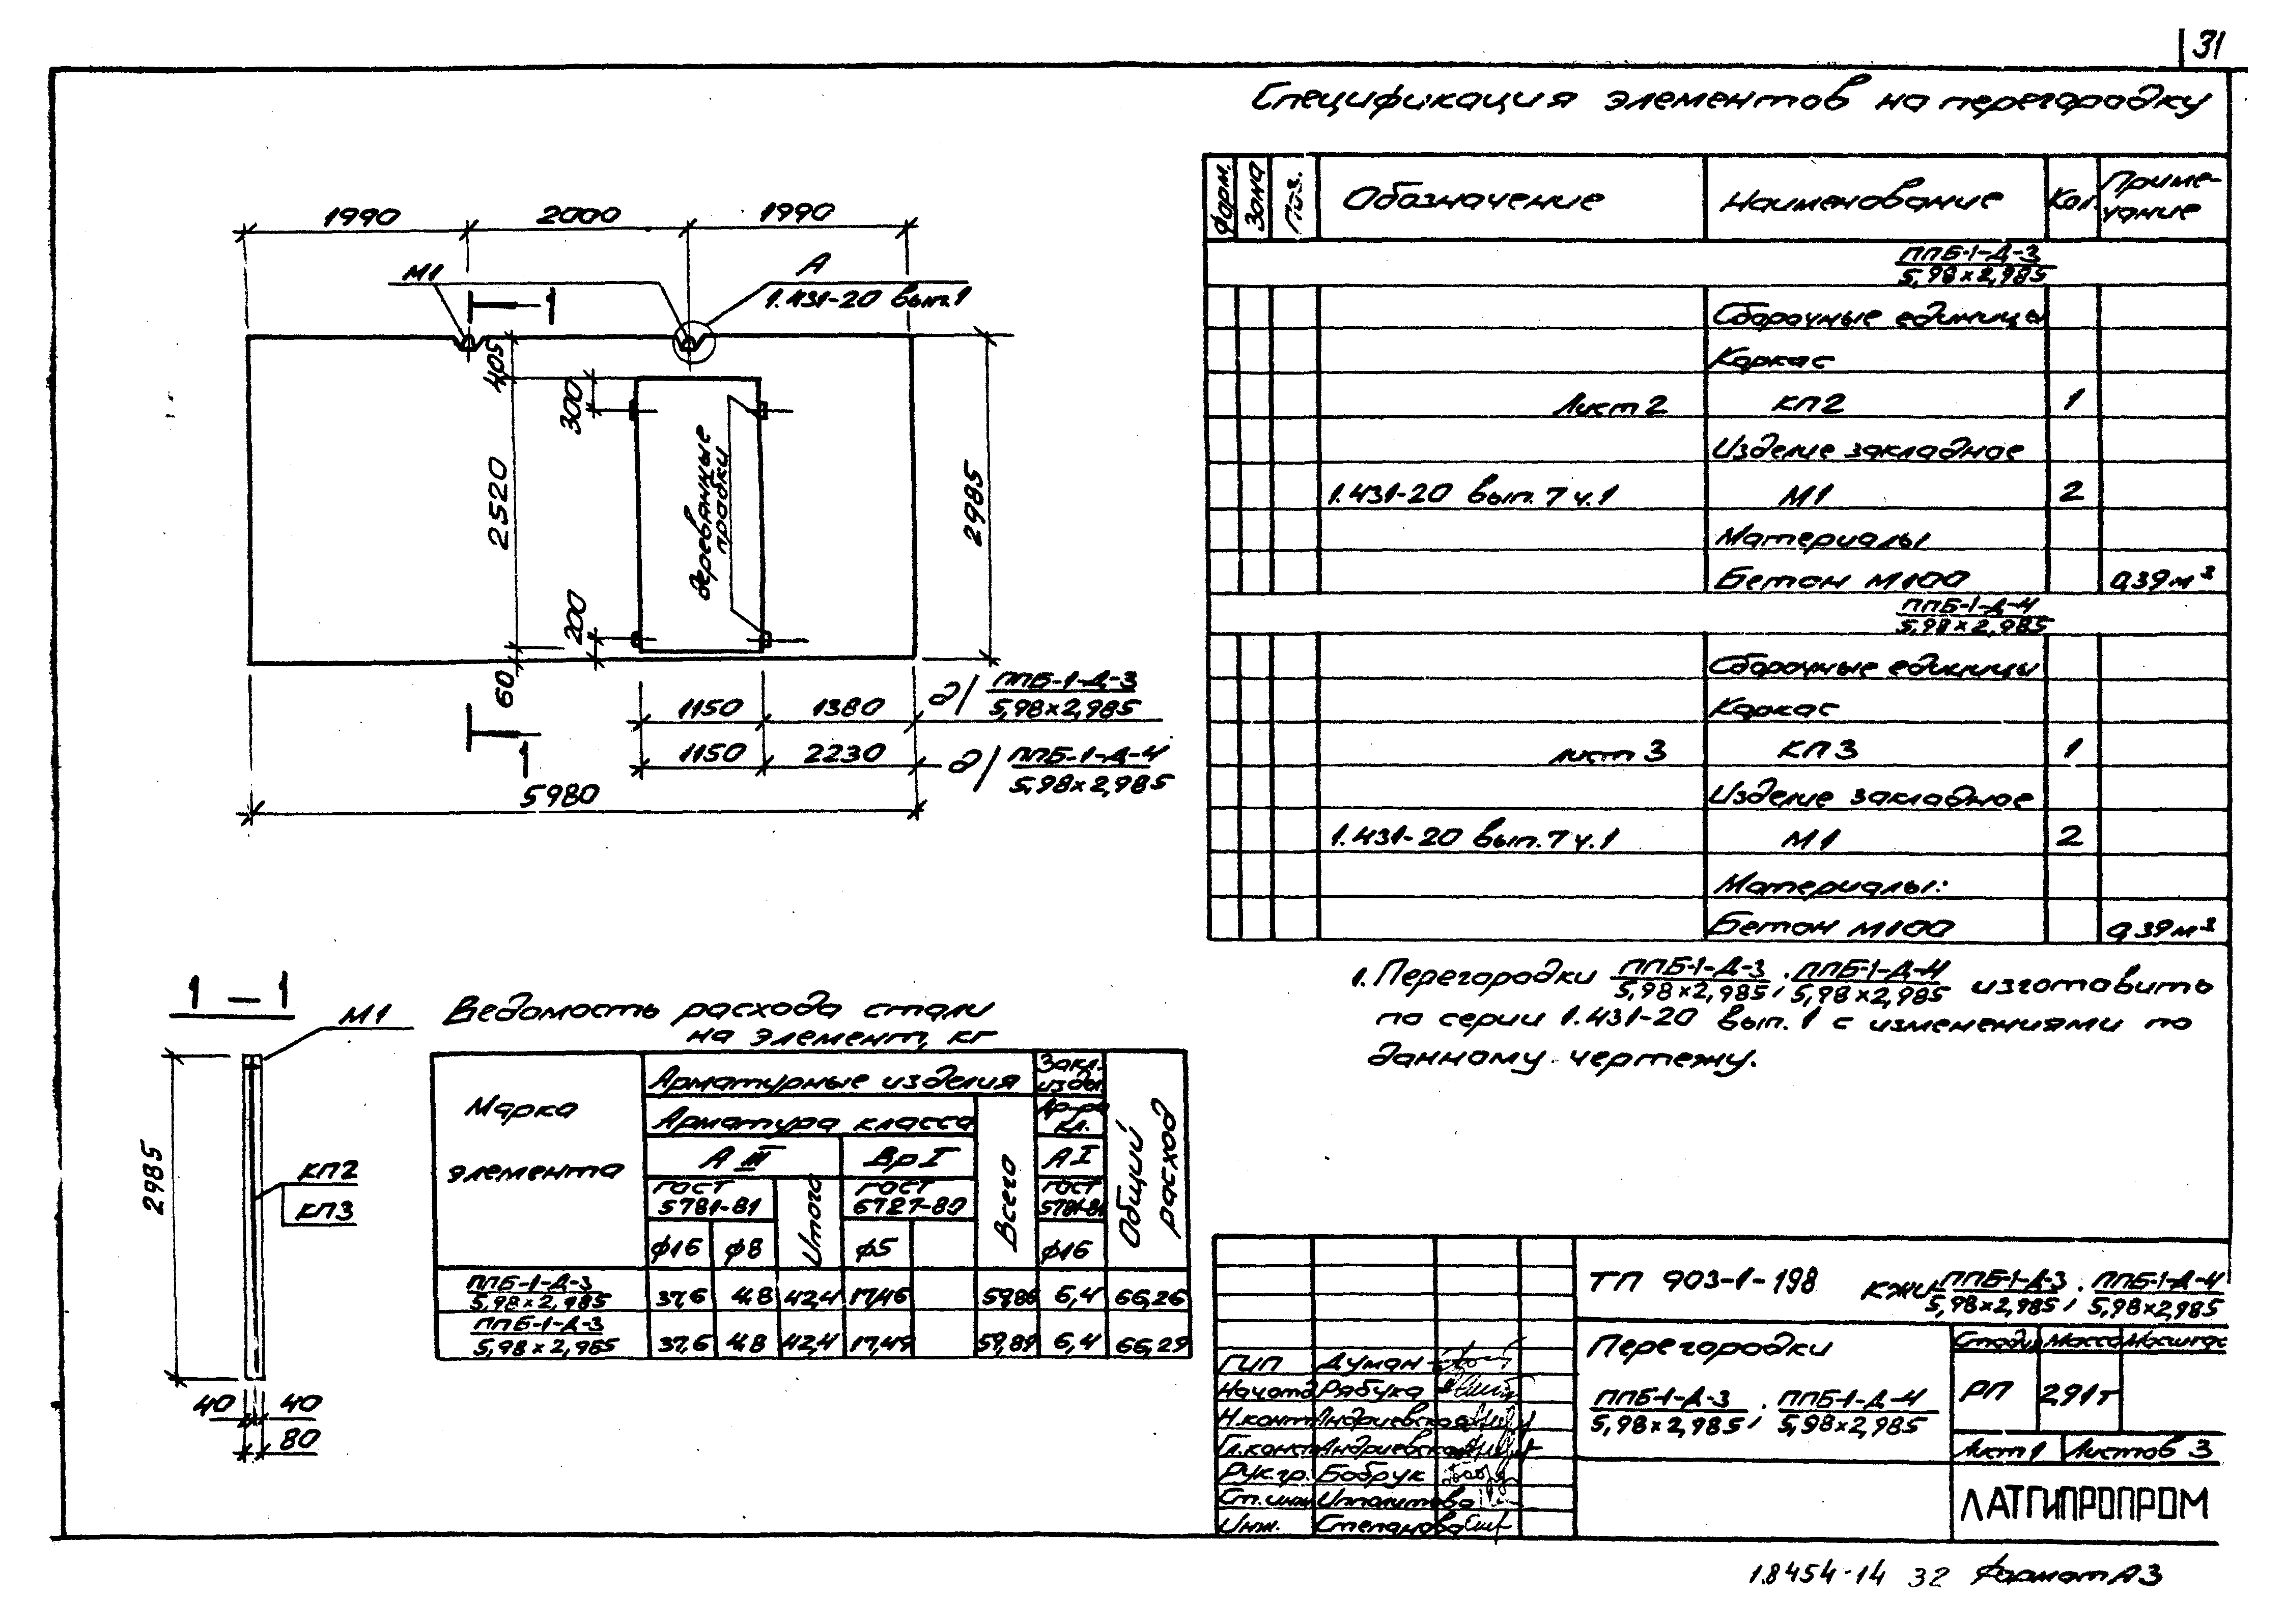 31
Спецификация элементов на перегородку
Форм. Зона Поз. Обозначение Наименование Кол. Приме-
чание
ППБ-1-Д-3
5,98×2,985
Сборочные единицы
Каркас
Лист 2 КП2 1
Изделие закладное
1.431-20 вып. 7 ч.1 М1 2
Материалы
Бетон М100 0,39 м³
ППБ-1-Д-4
5,98×2,985
Сборочные единицы
Каркас
лист 3 КП3 1
Изделие закладное
1.431-20 вып. 7 ч.1 М1 2
Материалы:
Бетон М100 0,39 м³
1990 2000 1990
М1
А
1.431-20 вып.1
1
405
300
2520
деревянные
пробки
2985
200
60
1
1150 1380 д/ ППБ-1-Д-3
5,98×2,985
1150 2230 д/ ППБ-1-Д-4
5,98×2,985
5980
1. Перегородки ППБ-1-Д-3 , ППБ-1-Д-4 изготовить
5,98×2,985, 5,98×2,985
по серии 1.431-20 вып. 1 с изменениями по
данному чертежу.
1-1
М1
2985
КП2
КП3
40 40
80
Ведомость расхода стали
на элемент, кг
Марка
элемента
Арматурные изделия
Закл.
издел.
Общий
расход
Арматура класса
Всего
Ар-ра
кл.
А III Вр I А I
ГОСТ
5781-81
Итого
ГОСТ
6727-80
ГОСТ
5781-81
ф16 ф8 ф5 ф16
ППБ-1-Д-3
5,98×2,985
37,6 4,8 42,4 17,46 59,86 6,4 66,26
ППБ-1-Д-3
5,98×2,985
37,6 4,8 42,4 17,49 59,89 6,4 66,29
ТП 903-1-198 КЖИ-ППБ-1-Д-3 , ППБ-1-Д-4
5,98×2,985, 5,98×2,985
Перегородки
ППБ-1-Д-3 , ППБ-1-Д-4
5,98×2,985, 5,98×2,985
Стадия Масса Масштаб
РП 2,91т
Лист 1 Листов 3
ЛАТГИПРОПРОМ
ГИП Думан
Нач.отд Рябука
Н.конт Андриевская
Гл.конст Андриевская
Рук.гр. Бобрук
Ст.инж Ипполитова
Инж. Степанова
18454-14 32 Формат А3